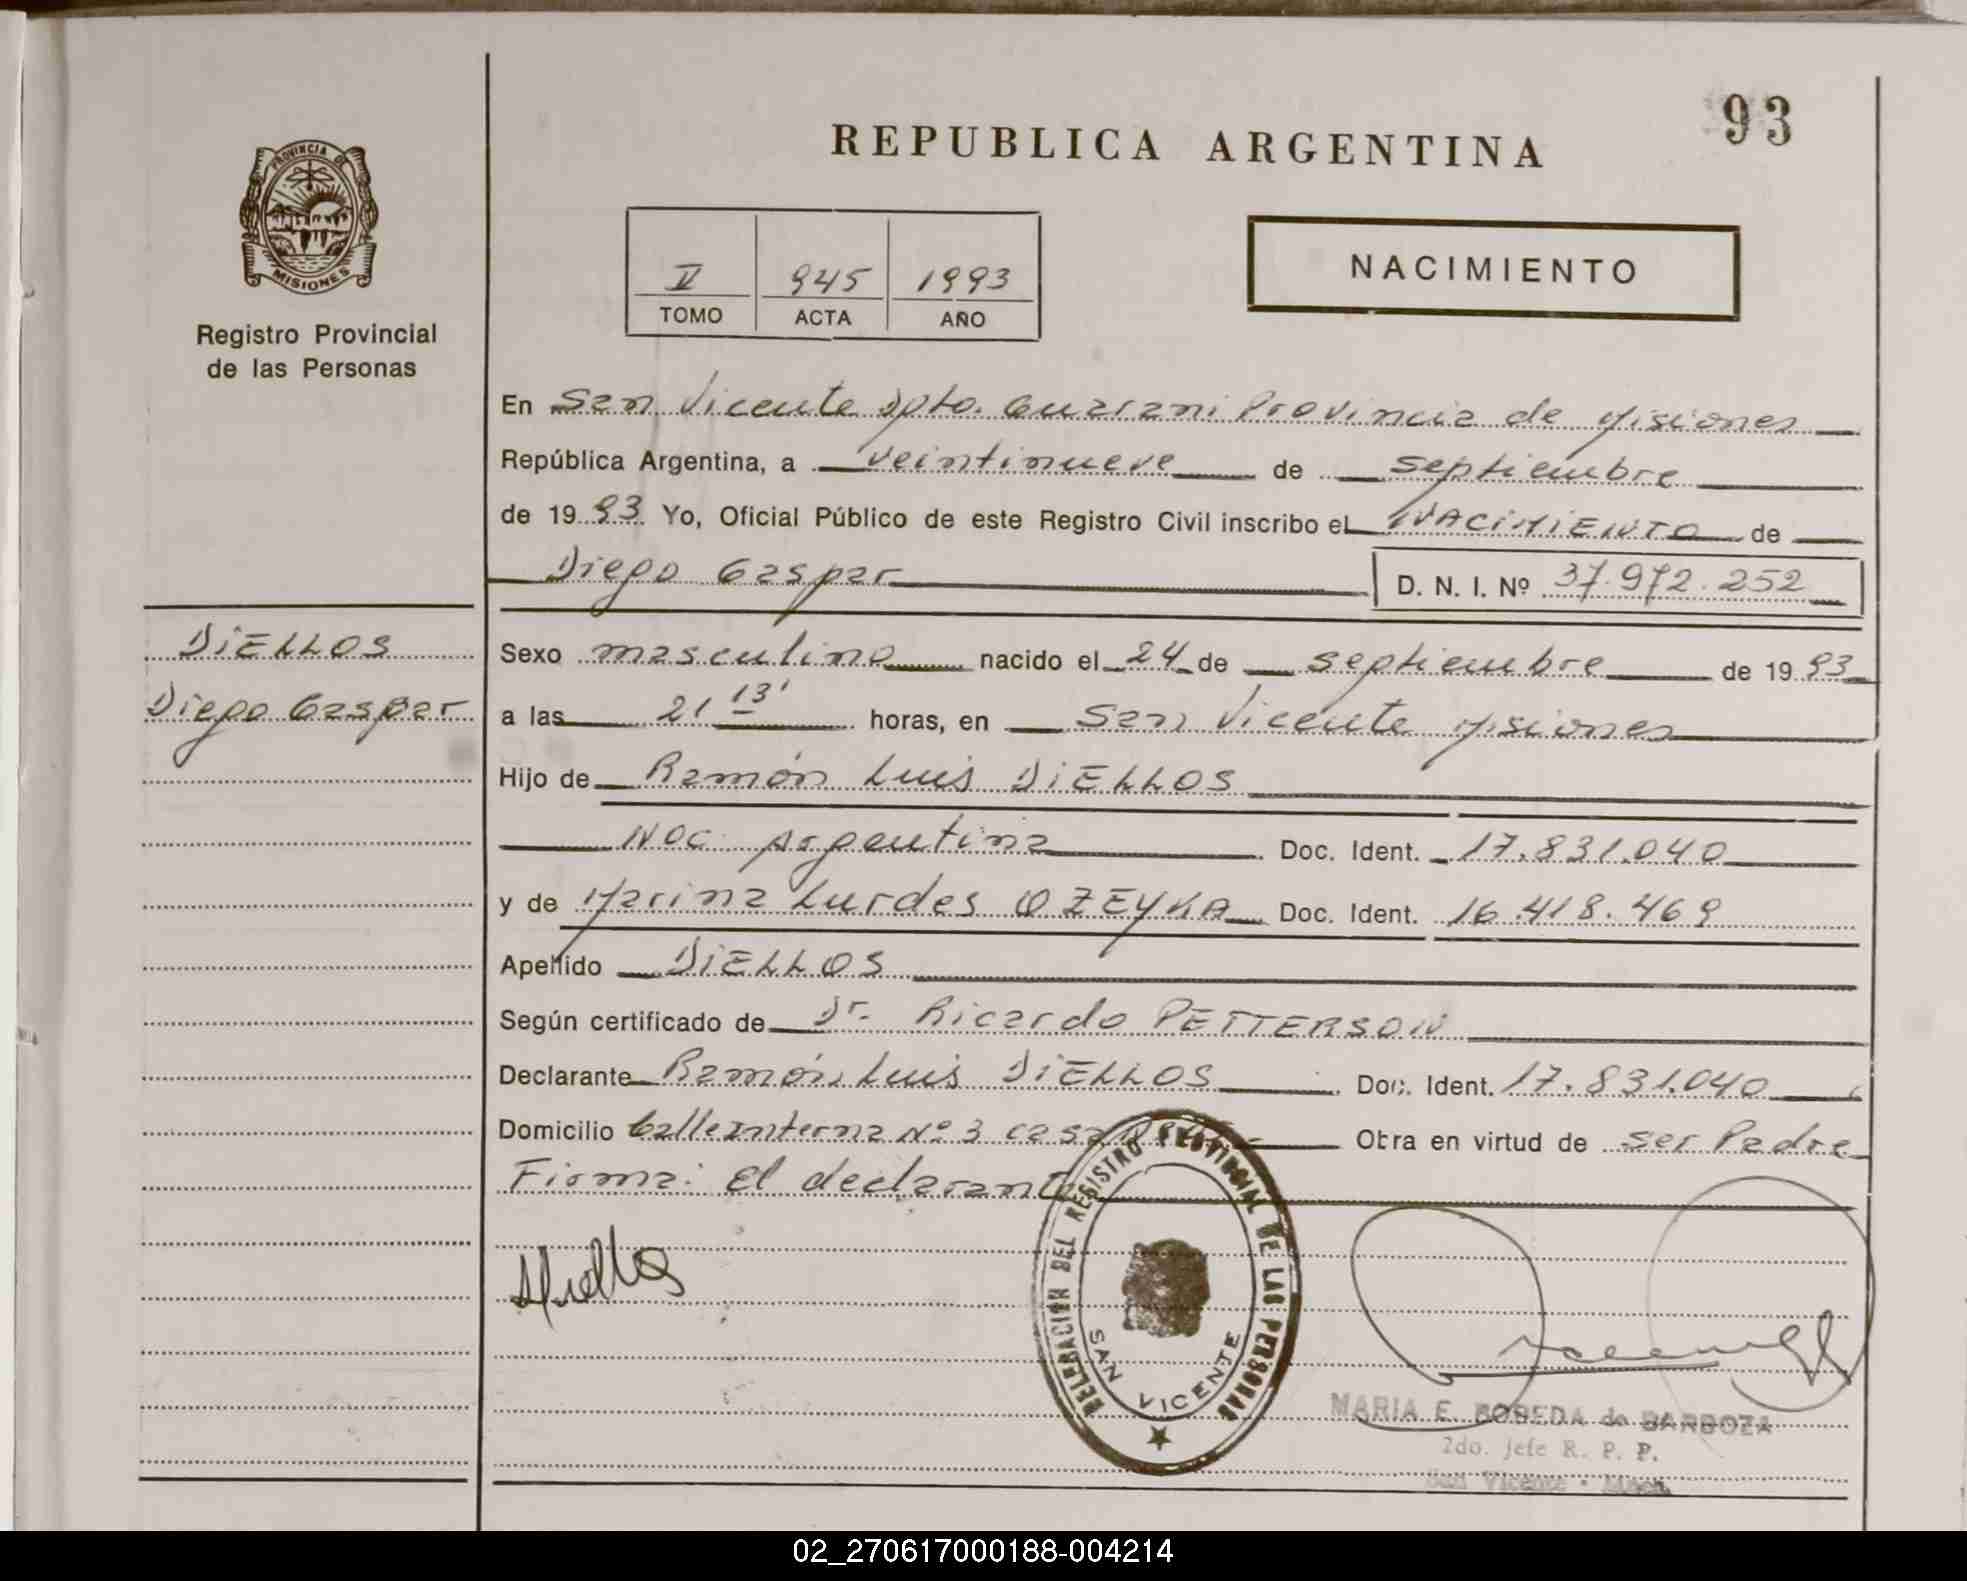 93
REPUBLICA ARGENTINA
PROVINCIA DE
MISIONES
Registro Provincial
de las Personas
NACIMIENTO
II 945 1993
TOMO ACTA AÑO
En San Vicente Dpto. Guarani Provincia de Misiones
República Argentina, a veintinueve de septiembre
de 1993 Yo, Oficial Público de este Registro Civil inscribo el NACIMIENTO de
Diego Gaspar D. N. I. Nº 37.972.252
DIELLOS
Diego Gaspar
Sexo masculino nacido el 24 de septiembre de 1993
a las 21 13' horas, en San Vicente Misiones
Hijo de Ramón Luis DIELLOS
Nac. Argentina Doc. Ident. 17.831.040
y de Marina Lurdes OZEYKA Doc. Ident. 16.418.469
Apellido DIELLOS
Según certificado de Dr. Ricardo PETTERSON
Declarante Ramón Luis DIELLOS Doc. Ident. 17.831.040
Domicilio Calle Interna Nº 3 casa Obra en virtud de ser Padre
Firma: El declarante
DELEGACION DEL REGISTRO PROVINCIAL DE LAS PERSONAS
SAN VICENTE
MARIA E. BOBEDA de BARBOZA
2do. Jefe R. P. P.
San Vicente - Mnes.
02_270617000188-004214